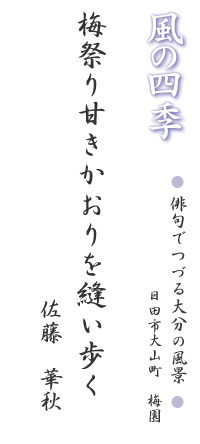 風の四季
●俳句でつづる大分の風景●
日田市大山町 梅園
梅祭り甘きかおりを縫い歩く
佐藤 華秋